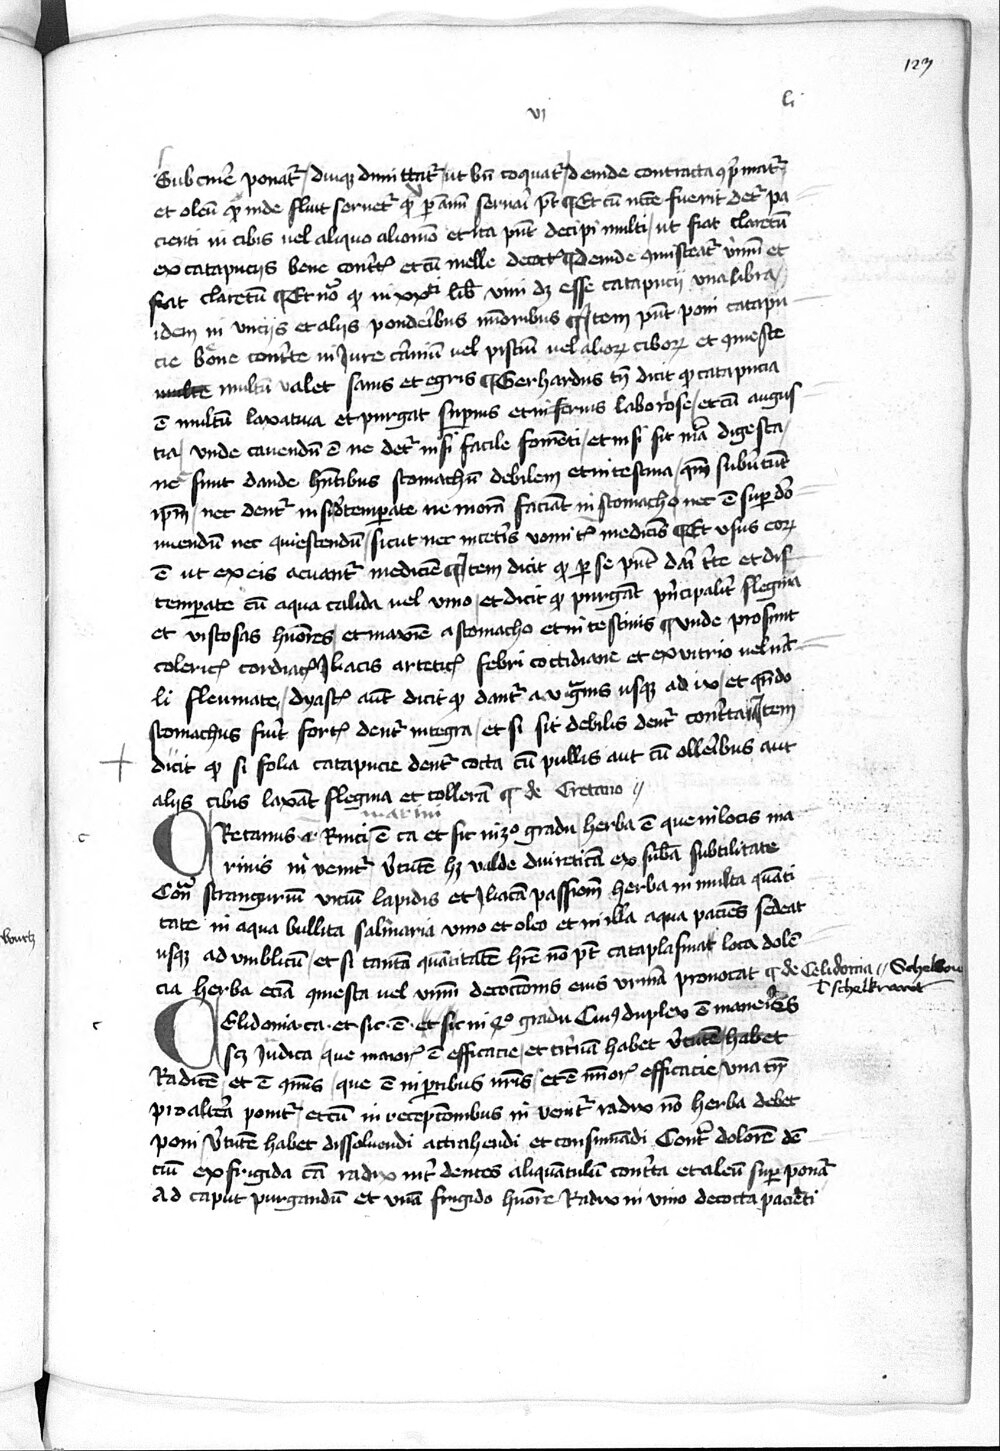 123
vi
li
Sub cinere ponatr / diuque dimittatr / ut bn coquatr / deinde contracta exprimatr
et oleu quod inde fluit seruetr quod per annu seruari pt ¶ Et cu necesse fuerit detr pa
cienti in cibis uel aliquo alio modo et ita pnt decipi multi / ut fiat claretu
ex catapuciis bene contritis et cu melle decoctis ¶ deinde commisceatr vinu et
fiat claretu ¶ Et no quod in xx li lib vini dz esse catapucii una libra /
idem in unciis et aliis ponderibus minoribus ¶ Item pnt poni catapu
cie bene contrite in Jure carniu uel pisciu uel alior cibor et comeste
multu valet sanis et egris ¶ Gerhardus tn dicit quod catapucia
e multu laxatiua et purgat superius et inferius laboriose / et cu angus
tia / unde cauendu e ne detr nisi facile fomenti / et nisi sit ma digesta /
ne sint dande hntibus stomachu debilem et intestina / qm subuertut
ipm / nec dentr nisi distemperate ne mora faciat in stomacho nec e super dor
miendu nec quiescendu / sicut nec in ceteris vomitis medicis ¶ Et usus eor
e ut ex eis acuantr medicie ¶ Item dicit quod per se pnt dari trite et dis
temperate cu aqua calida uel vino / et dicit quod purgat principalitr flegma
et viscosas huores / et maxie a stomacho et intestinis ¶ unde prosunt
colericis cordiacis Iliacis arteticis febri cottidiane et ex vitrio uel na
li fleumate / dyascs aut dicit quod dantr a v granis usque ad ix / et qndo
stomachus fuit fortis dentr integra / et si sit debilis dentr contrita ¶ Item
dicit quod si folia catapucie dentr cocta cu pullis aut cu olleribus aut
aliis cibis laxat flegma et collera ¶ de Cretano //
marini
CRetanus .i. Rinci e ca et sic in 3o gradu herba e que in locis ma
rinis inuenitr virtute hz valde diuretica ex suba subtilitate
Contra stranguriu viciu lapidis et Iliaca passione herba in multa quati
tate in aqua bullita salmaria vino et oleo et in illa aqua paciens sedeat
usque ad vmblicu / et si tanta quantitate hre no pt cataplasmat loca dole
cia herba ecia comesta uel vinu decoctionis eius vrina prouocat ¶ de Celidonia // Schelwu
l schelkrawt
CElidonia . ca . et sic . e . et sic in 4o gradu Cui duplex e maneries
scz Judica que maioris e efficacie / et citrina habet virtute habet
Radice / et e comunis / que e in partibus nris / et e minoris efficacie / una tn
pro altera ponitr / et cu in receptionibus inuenitr radix no herba debet
poni virtute habet dissoluendi attrahendi et consumadi Contra dolore de
tiu ex frigida ca radix intr dentes aliquantulu contrita et aleu super ponar
Ad caput purgandu et vua frigido huore Radix in vino decocta pacieti